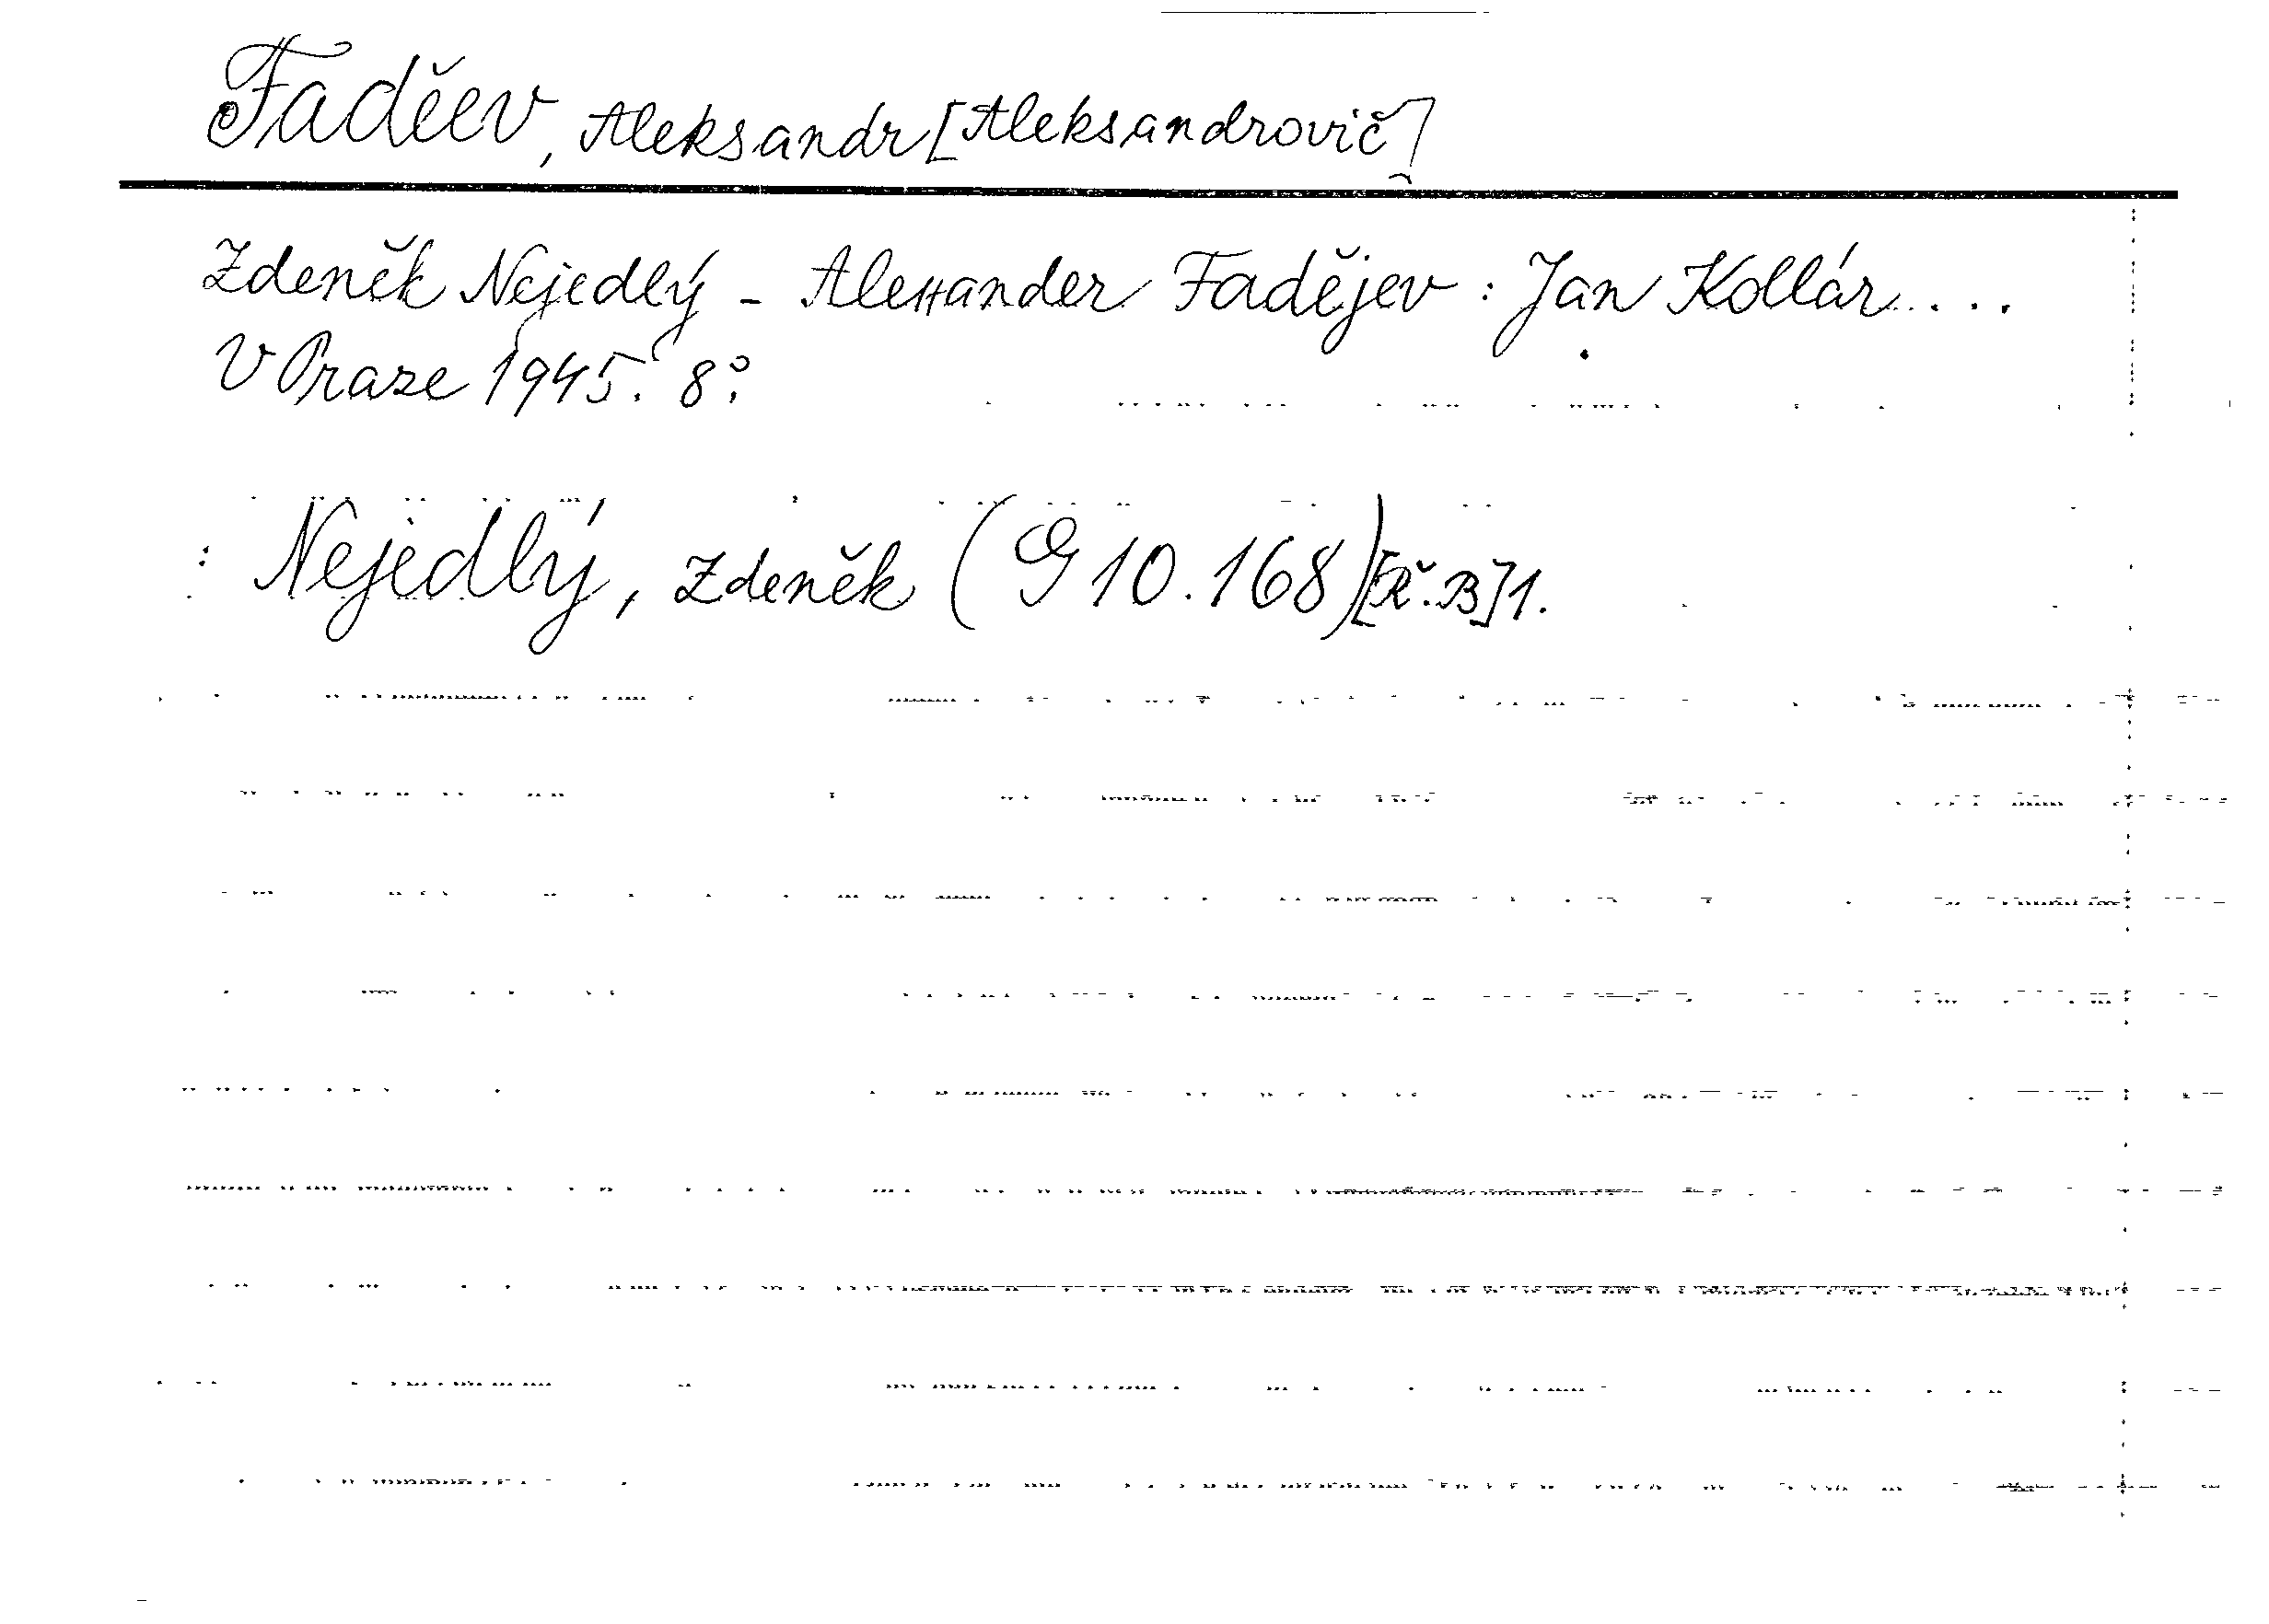 Faděev, Aleksandr [Aleksandrovič]
Zdeněk Nejedlý - Alexander Fadějev : Jan Kollár....
V Praze 1945. 8°.
: Nejedlý, Zdeněk (G 10.168) [Rř. B] 1.